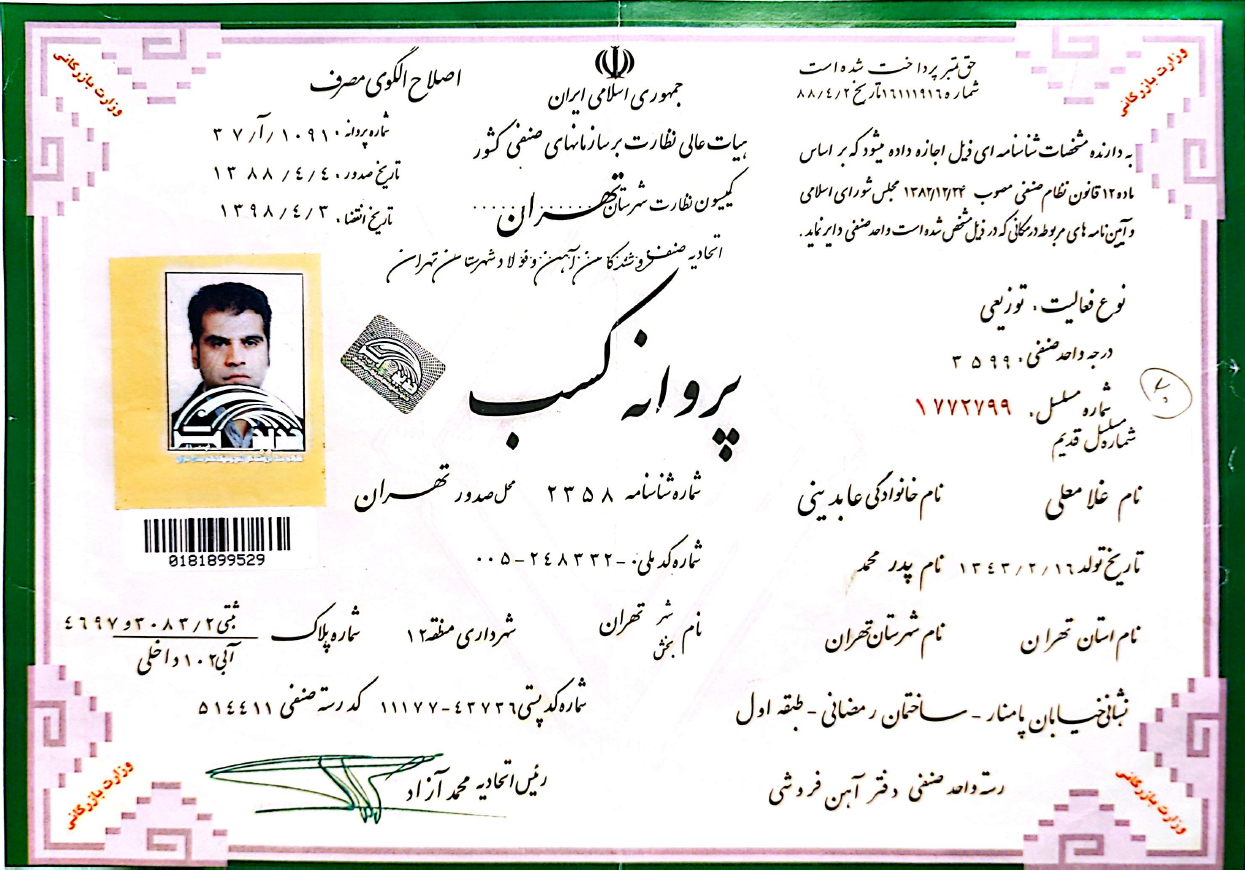 وزارت بازرگانی
وزارت بازرگانی
حق تمبر پرداخت شده است
شماره ۱۶۱۱۱۹۱۶ تاریخ ۸۸/٤/۲
جمهوری اسلامی ایران
هیات عالی نظارت بر سازمانهای صنفی کشور
کمیسیون نظارت شهرستان تهران
اتحادیه صنف فروشندگان آهن و فولاد شهرستان تهران
اصلاح الگوی مصرف
شماره پروانه ۳۷/آ/۱۰۹۱۰
تاریخ صدور ۱۳۸۸/٤/٤
تاریخ انقضاء ۱۳۹۸/٤/۳
به دارنده مشخصات شناسنامه ای ذیل اجازه داده میشود که بر اساس
ماده ۱۲ قانون نظام صنفی مصوب ۱۳۸۲/۱۲/۲۴ مجلس شورای اسلامی
و آیین نامه های مربوطه در مکانی که در ذیل مشخص شده است واحد صنفی دایر نماید.
پروانه کسب
نوع فعالیت توزیعی
درجه واحد صنفی ۳۵۹۹
شماره مسلسل ۱۷۷۲۷۹۹
شماره مسلسل قدیم
0181899529
نام غلامعلی نام خانوادگی عابد بینی شماره شناسنامه ۲۳۵۸ محل صدور تهران
تاریخ تولد ۱۳٤۳/۲/۱٦ نام پدر محمد شماره کد ملی ۰۰۵-۲٤۸۳۳۲-۰
نام استان تهران نام شهرستان تهران نام شهر بخش تهران شهرداری منطقه ۱۲ شماره پلاک ثبتی ۳۰۸۳/۲ و ٤٦۹۷
آبی ۱۰۲ داخلی
نشانی خیابان پامنار - ساختمان رمضانی - طبقه اول شماره کد پستی ۱۱۱۷۷-٤۳۷۳٦ کد رسته صنفی ۵۱٤٤۱۱
رسته واحد صنفی دفتر آهن فروشی
رئیس اتحادیه محمد آزاد
وزارت بازرگانی
وزارت بازرگانی